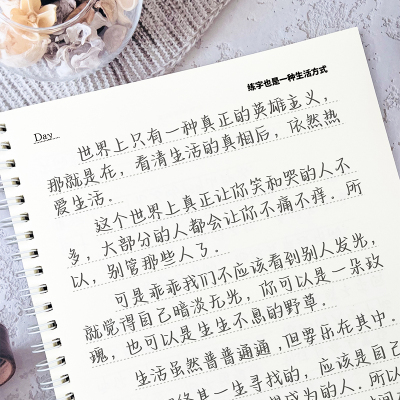 练字也是一种生活方式
Day
世界上只有一种真正的英雄主义，
那就是在，看清生活的真相后，依然热
爱生活．
这个世界上真正让你笑和哭的人不
多，大部分的人都会让你不痛不痒．所
以，别管那些人了．
可是乖乖我们不应该看到别人发光，
就觉得自己暗淡无光，你可以是一朵玫
瑰，也可以是生生不息的野草．
生活虽然普普通通，但要乐在其中．
其一生寻找的，应该是自己
成为的人．所以